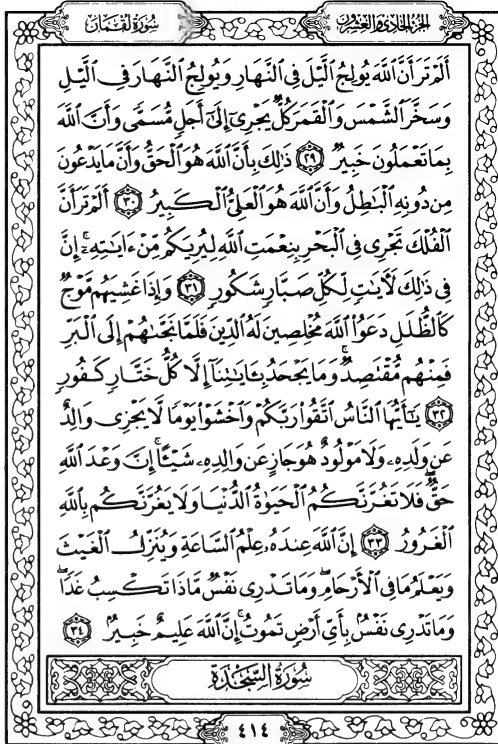 سُورَةُ لُقْمَانَ
الجُزْءُ الحَادِي وَالعِشْرُونَ
أَلَمْ تَرَ أَنَّ ٱللَّهَ يُولِجُ ٱلَّيْلَ فِي ٱلنَّهَارِ وَيُولِجُ ٱلنَّهَارَ فِي ٱلَّيْلِ
وَسَخَّرَ ٱلشَّمْسَ وَٱلْقَمَرَ كُلٌّ يَجْرِىٓ إِلَىٰٓ أَجَلٍ مُّسَمًّى وَأَنَّ ٱللَّهَ
بِمَا تَعْمَلُونَ خَبِيرٌ ٢٩ ذَٰلِكَ بِأَنَّ ٱللَّهَ هُوَ ٱلْحَقُّ وَأَنَّ مَا يَدْعُونَ
مِن دُونِهِ ٱلْبَٰطِلُ وَأَنَّ ٱللَّهَ هُوَ ٱلْعَلِىُّ ٱلْكَبِيرُ ٣٠ أَلَمْ تَرَ أَنَّ
ٱلْفُلْكَ تَجْرِى فِى ٱلْبَحْرِ بِنِعْمَتِ ٱللَّهِ لِيُرِيَكُم مِّنْ ءَايَٰتِهِۦٓ ۚ إِنَّ
فِى ذَٰلِكَ لَءَايَٰتٍ لِّكُلِّ صَبَّارٍ شَكُورٍ ٣١ وَإِذَا غَشِيَهُم مَّوْجٌ
كَٱلظُّلَلِ دَعَوُا۟ ٱللَّهَ مُخْلِصِينَ لَهُ ٱلدِّينَ فَلَمَّا نَجَّىٰهُمْ إِلَى ٱلْبَرِّ
فَمِنْهُم مُّقْتَصِدٌ ۚ وَمَا يَجْحَدُ بِـَٔايَٰتِنَآ إِلَّا كُلُّ خَتَّارٍ كَفُورٍ
٣٢ يَٰٓأَيُّهَا ٱلنَّاسُ ٱتَّقُوا۟ رَبَّكُمْ وَٱخْشَوْا۟ يَوْمًا لَّا يَجْزِى وَالِدٌ
عَن وَلَدِهِۦ وَلَا مَوْلُودٌ هُوَ جَازٍ عَن وَالِدِهِۦ شَيْـًٔا ۚ إِنَّ وَعْدَ ٱللَّهِ
حَقٌّ ۖ فَلَا تَغُرَّنَّكُمُ ٱلْحَيَوٰةُ ٱلدُّنْيَا وَلَا يَغُرَّنَّكُم بِٱللَّهِ
ٱلْغَرُورُ ٣٣ إِنَّ ٱللَّهَ عِندَهُۥ عِلْمُ ٱلسَّاعَةِ وَيُنَزِّلُ ٱلْغَيْثَ
وَيَعْلَمُ مَا فِى ٱلْأَرْحَامِ ۖ وَمَا تَدْرِى نَفْسٌ مَّاذَا تَكْسِبُ غَدًا ۖ
وَمَا تَدْرِى نَفْسٌۢ بِأَىِّ أَرْضٍ تَمُوتُ ۚ إِنَّ ٱللَّهَ عَلِيمٌ خَبِيرٌۢ ٣٤
سُورَةُ السَّجْدَةِ
٤١٤